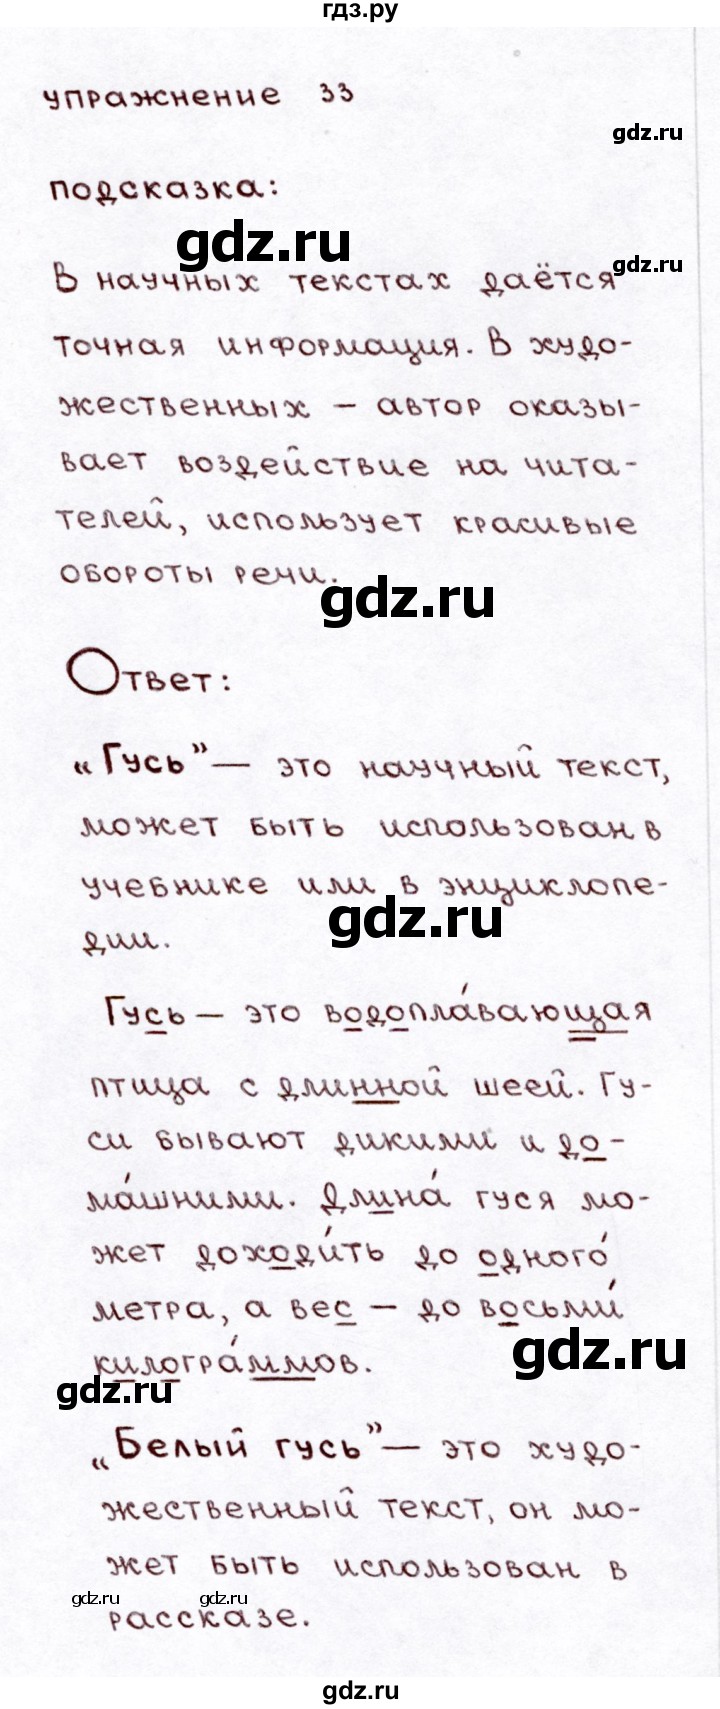 гдз.ру
упражнение 33
gdz.ru
подсказка:
gdz.ru
gdz.ru
В научных текстах даётся
точная информация. В худо-
жественных – автор оказы-
вает воздействие на чита-
телей, использует красивые
обороты речи.
gdz.ru
Ответ:
„Гусь” — это научный текст,
может быть использован в
учебнике или в энциклопе-
gdz.ru
дии.
Гусь — это водопла́вающая
птица с длинной шеей. Гу-
си бывают дикими и до-
ма́шними. Длина́ гуся мо-
жет доходи́ть до одного́
метра, а вес – до восьми́
gdz.ru
килогра́ммов.
gdz.ru
„Белый гусь” — это худо-
жественный текст, он мо-
жет быть использован в
gdz.ru gdz.ru
рассказе.
gdz.ru